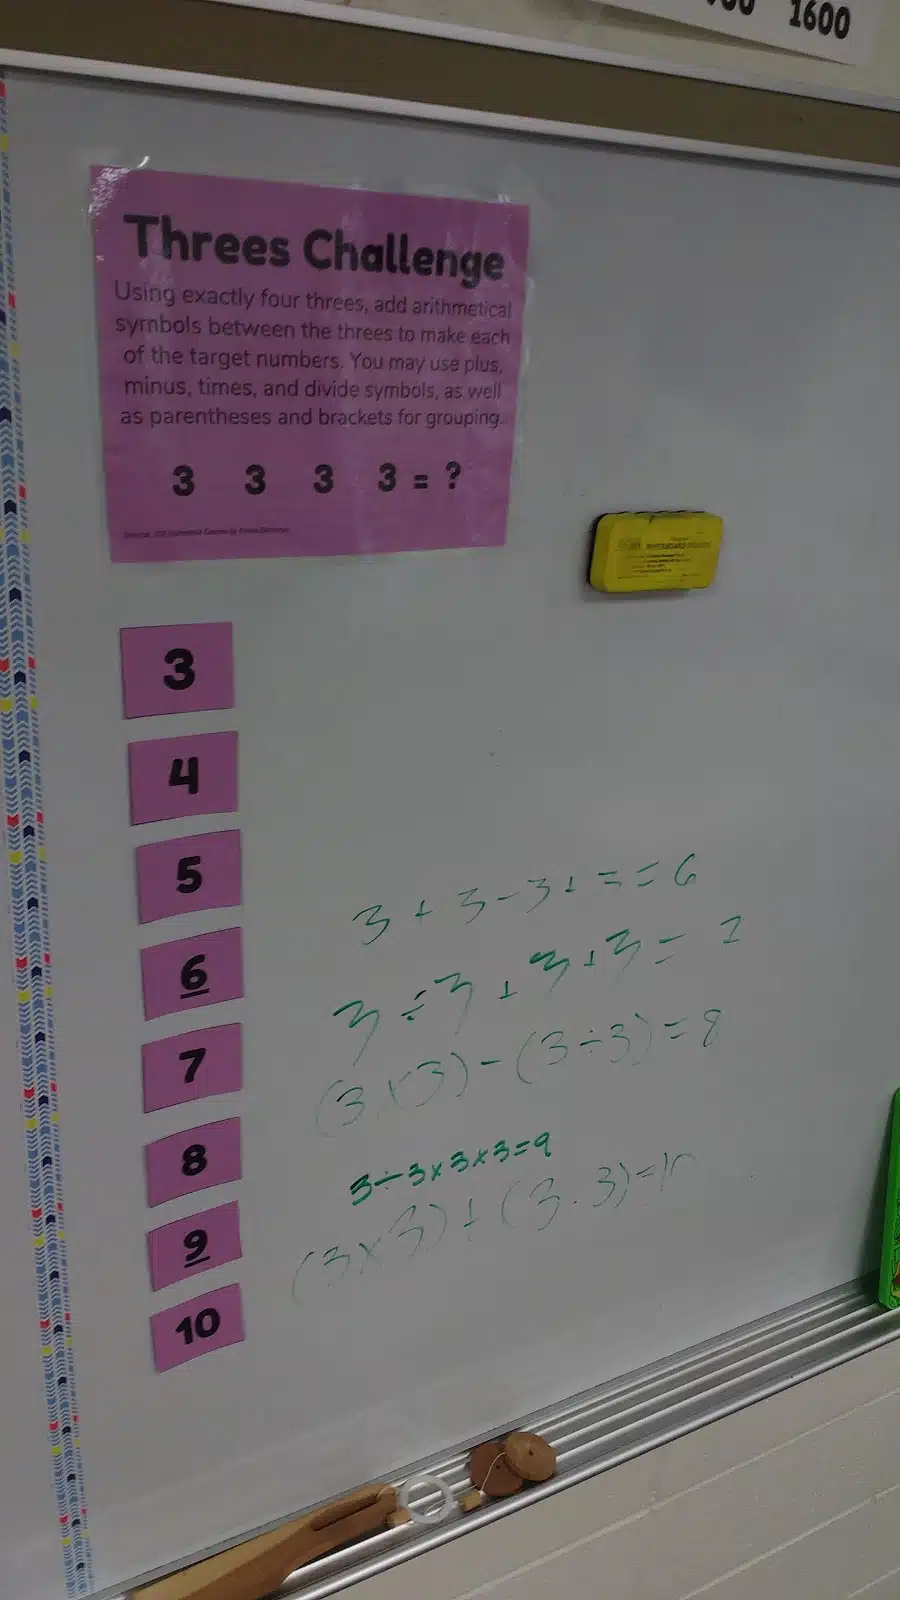 1600
Threes Challenge
Using exactly four threes, add arithmetical
symbols between the threes to make each
of the target numbers. You may use plus,
minus, times, and divide symbols, as well
as parentheses and brackets for grouping.
3 3 3 3 = ?
3
4
5
3 + 3 - 3 + = = 6
6
3 ÷ 3 + 3 + 3 =
7
(3 × 3) - (3 ÷ 3) = 8
8
3 ÷ 3 × 3 × 3 = 9
9
(3 × 3) + (3 3) =
10